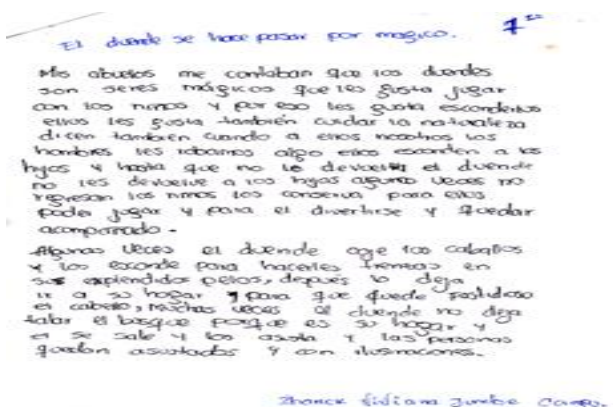 El duende se hace pasar por magico.
Mis abuelos me contaban que los duendes
son seres mágicos que les gusta jugar
con los niños y por eso les gusta esconderlos
ellos les gusta también cuidar la naturaleza
dicen también cuando a ellos nosotros los
hombres les robamos algo ellos esconden a los
hijos y hasta que no le devuelva el duende
no les devuelve a los hijos algunas veces no
regresan los niños los conserva para ellos
poder jugar y para el divertirse y quedar
acompañado.
Algunas veces el duende coje los caballos
y los esconde para hacerles trenzas en
sus esplendidos pelos, después lo deja
ir a su hogar y para que quede fastidioso
el cabello, muchas veces el duende no deja
talar el bosque porque es su hogar y
el se sale y los asusta y las personas
quedan asustados y con ilusinaciones.